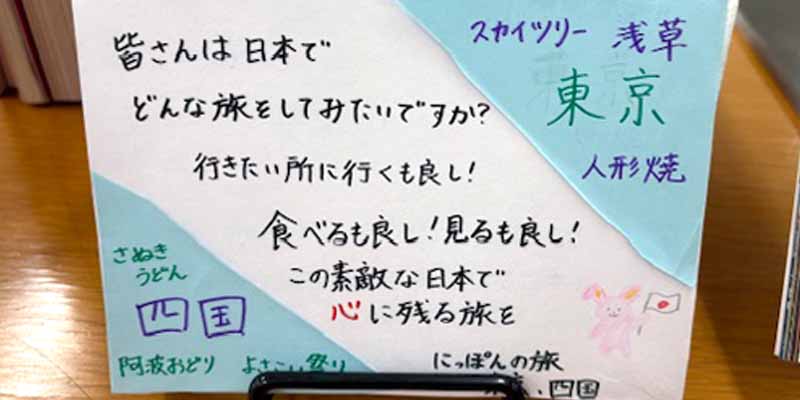 皆さんは日本で
どんな旅をしてみたいですか?
行きたい所に行くも良し!
食べるも良し!見るも良し!
この素敵な日本で
心に残る旅を
にっぽんの旅
東京、四国
スカイツリー 浅草
東京
人形焼
さぬき
うどん
四国
阿波おどり よさこい祭り